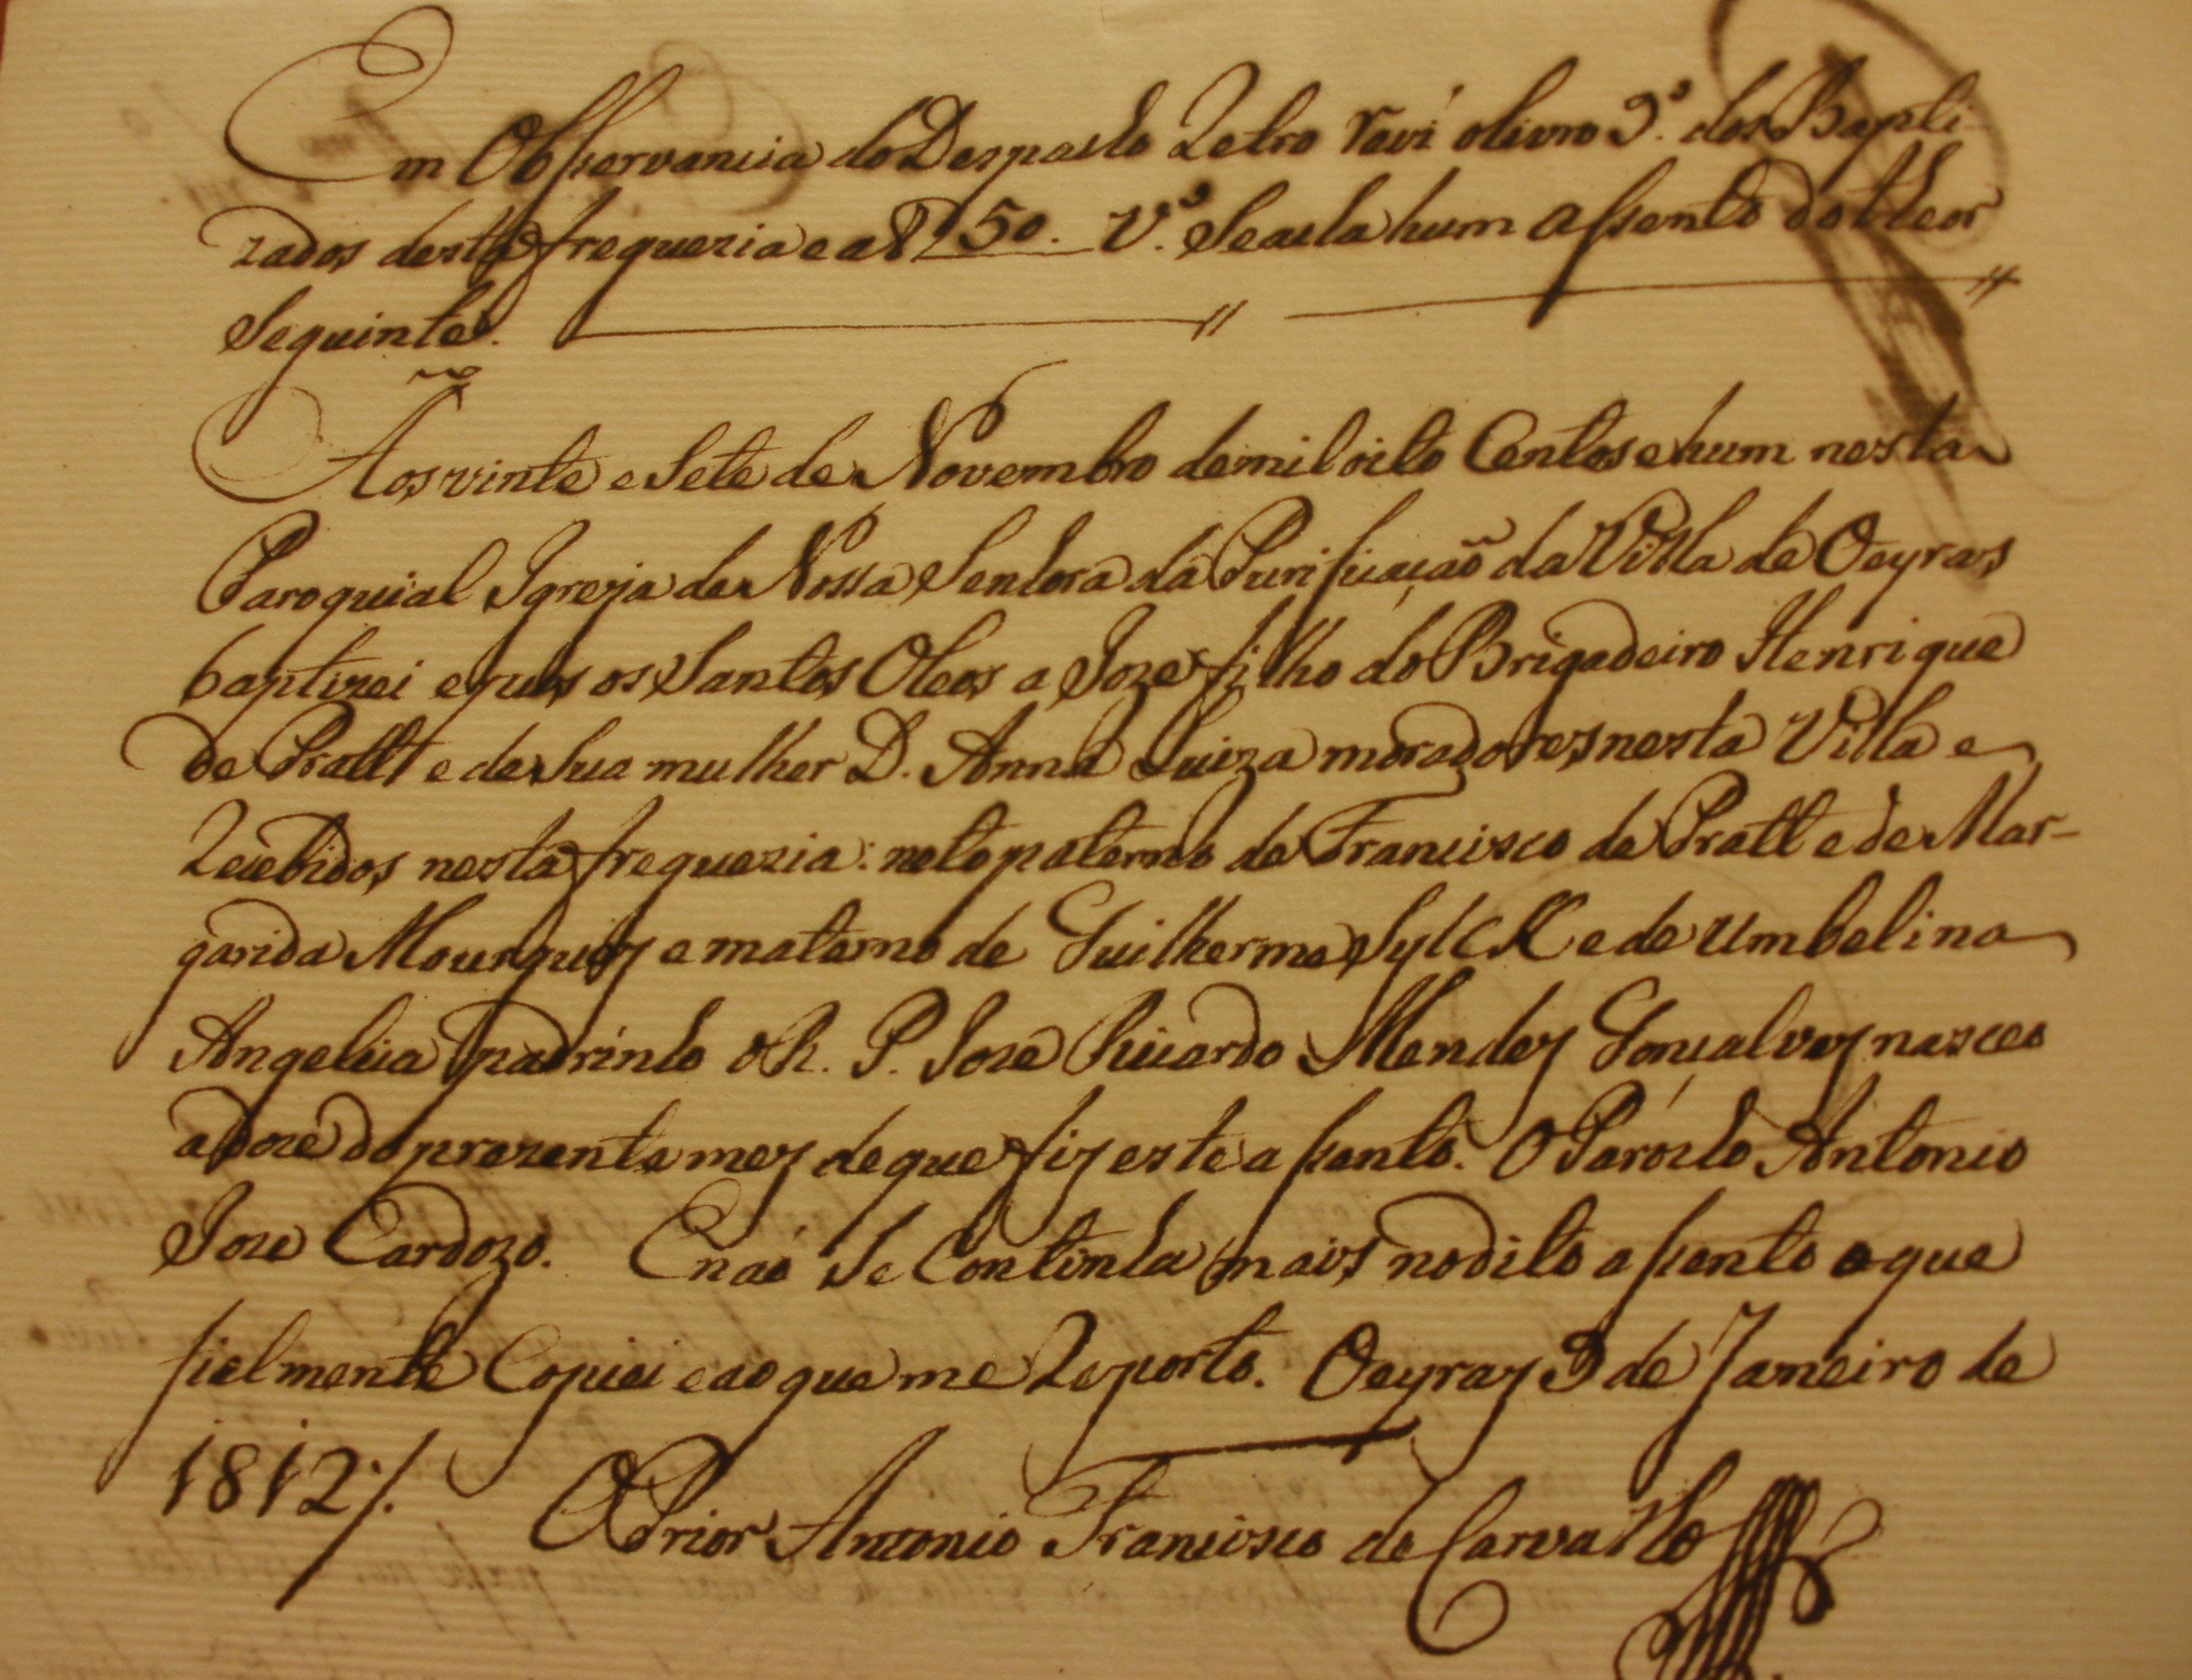 Em Observancia do Despacho Retro reví o livro 9.º dos Bapti-
zados desta freguezia e a f 50. V.º Se acha hum assento do theor
Seguinte.
Aos vinte e Sete de Novembro de mil oito Centos e hum nesta
Paroquial Igreja de Nossa Senhora da Purificação da Villa de Oeyras
baptizei e pus os Santos Oleos a Joze filho do Brigadeiro Henrique
de Pratt e de Sua mulher D. Anna Luiza moradores nesta Villa e
Recebidos nesta freguezia: neto paterno de Francisco de Pratt e de Mar-
garida e materno de Guilherme e de Umbelina
Angelica padrinho o R. P. Joze Ricardo Mendes Gonçalves nasceo
a doze do prezente mez de que fiz este assento. O Parocho Antonio
Joze Cardozo. E naõ Se Continha mais no dito assento o que
fielmente Copiei e ao que me Reporto. Oeyras 9 de Janeiro de
1812 /.
O Prior Antonio Francisco de Carvalho